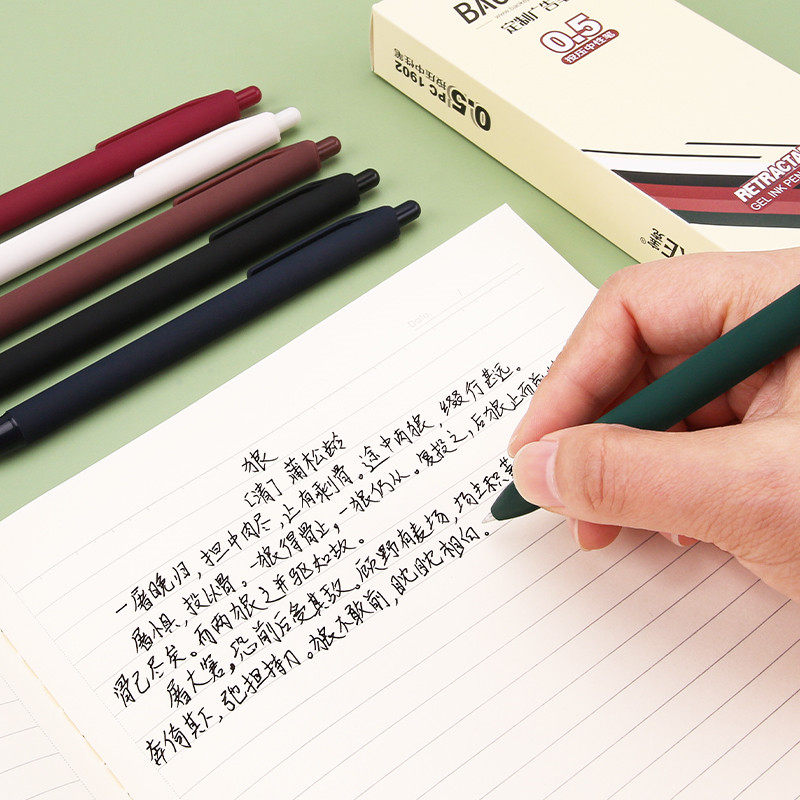 定制广告
0.5
按压中性笔
0.5 PC 1902
按压中性笔
RETRACTA
GEL INK PEN
Date
狼
[清] 蒲松龄
一屠晚归，担中肉尽，止有剩骨。途中两狼，缀行甚远。
屠惧，投以骨。一狼得骨止，一狼仍从。复投之，后狼止而前
骨已尽矣。而两狼之并驱如故。
屠大窘，恐前后受其敌。顾野有麦场，场主积
奔倚其下，弛担持刀。狼不敢前，眈眈相向。